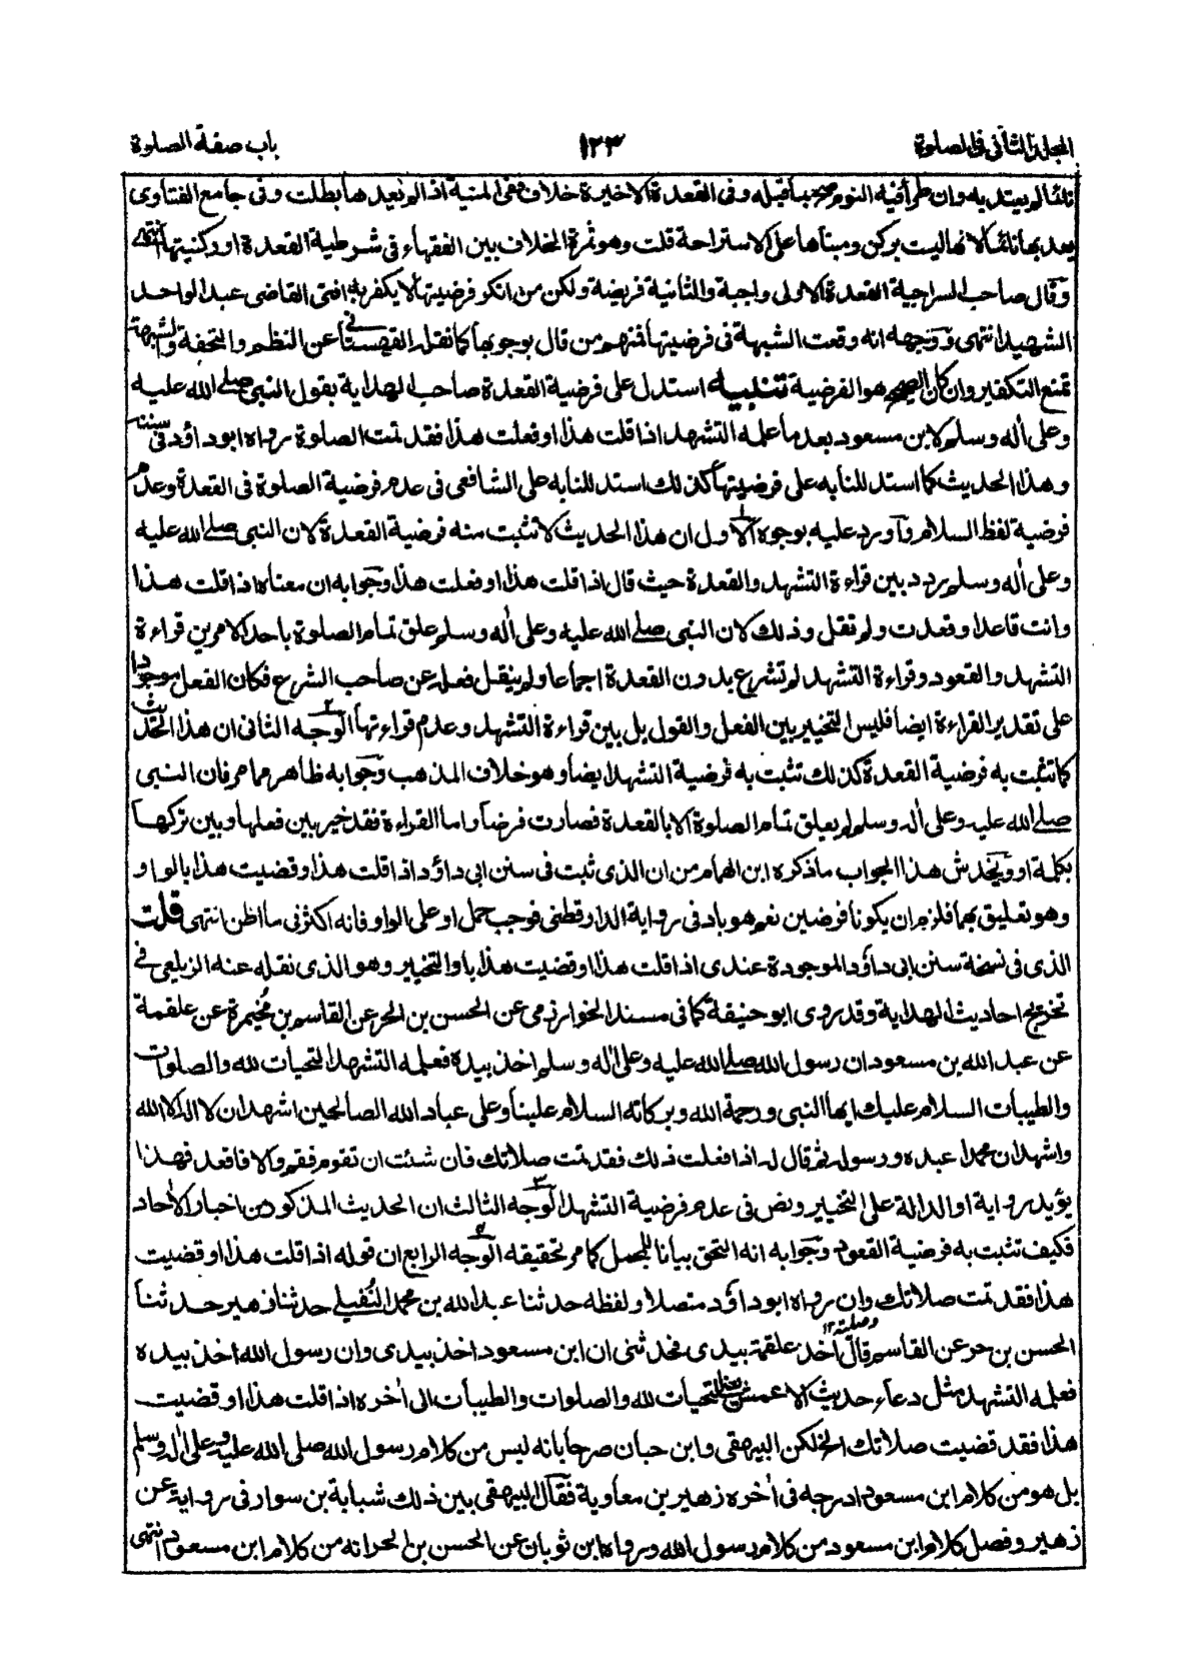 المجلد الثاني في الصلوة ١٢٣ باب صفة الصلوة
نائما لم يعتد به وان طرأ فيه النوم صح بما قبله وفى القعدة الاخيرة خلاف ففى المنية اذا لم يعدها بطلت وفى جامع الفتاوى
يعد بها نائما لانها ليست بركن ومبناها على الاستراحة قلت وهو ثمرة الخلاف بين الفقهاء فى شرطية القعدة او ركنيتها انتهى
وقال صاحب السراجية القعدة الاولى واجبة والثانية فريضة ولكن من انكر فرضيتها لا يكفر به افتى القاضى عبد الواحد
الشهيد انتهى ووجهه انه وقعت الشبهة فى فرضيتها فمنهم من قال بوجوبها كما نقله القهستانى عن النظم والتحفة والشبهة
تمنع التكفير وان كان الصحيح هو الفرضية تنبيه استدل على فرضية القعدة صاحب الهداية بقول النبى صلى الله عليه
وعلى اله وسلم لابن مسعود بعد ما علمه التشهد اذا قلت هذا او فعلت هذا فقد تمت الصلوة رواه ابوداؤد فى سننه
وهذا الحديث كما استدللنا به على فرضيتها كذلك استدللنا به على الشافعى فى عدم فرضية الصلوة فى القعدة وعدم
فرضية لفظ السلام وأورد عليه بوجوه الاول ان هذا الحديث لا تثبت منه فرضية القعدة لان النبى صلى الله عليه
وعلى اله وسلم ردد بين قراءة التشهد والقعدة حيث قال اذا قلت هذا او فعلت هذا وجوابه ان معناه اذا قلت هذا
وانت قاعد او قعدت ولم تقل وذلك لان النبى صلى الله عليه وعلى اله وسلم علق تمام الصلوة باحد الامرين قراءة
التشهد والقعود وقراءة التشهد لم تشرع بدون القعدة اجماعا ولم ينقل فعله عن صاحب الشرع فكان الفعل موجودا
على تقدير القراءة ايضا فليس التخيير بين الفعل والقول بل بين قراءة التشهد وعدم قراءتها الوجه الثانى ان هذا الحديث
كما تثبت به فرضية القعدة كذلك تثبت به فرضية التشهد ايضا وهو خلاف المذهب وجوابه ظاهر مما مر فان النبى
صلى الله عليه وعلى اله وسلم لم يعلق تمام الصلوة الا بالقعدة فصارت فرضا واما القراءة فقد خير بين فعلها وبين تركها
بكلمة او ويخدش هذا الجواب ما ذكره ابن الهمام من ان الذى ثبت فى سنن ابى داؤد اذا قلت هذا وقضيت هذا بالواو
وهو تعليق بهما فلزم ان يكونا فرضين نعم هو باو فى رواية الدارقطنى فوجب حمل او على الواو فانه اكثرى ما اظن انتهى قلت
الذى فى نسخة سنن ابى داؤد الموجودة عندى اذا قلت هذا او قضيت هذا باو التخيير وهو الذى نقله عنه الزيلعى فى
تخريج احاديث الهداية وقد روى ابو حنيفة كما فى مسند الخوارزمى عن الحسن بن الحر عن القاسم بن مُخيمرة عن علقمة
عن عبد الله بن مسعود ان رسول الله صلى الله عليه وعلى اله وسلم اخذ بيده فعلمه التشهد التحيات لله والصلوات
والطيبات السلام عليك ايها النبى ورحمة الله وبركاته السلام علينا وعلى عباد الله الصالحين اشهد ان لا اله الا الله
واشهد ان محمدا عبده ورسوله ثم قال له اذا فعلت ذلك فقد تمت صلاتك فان شئت ان تقوم فقم والا فاقعد فهذا
يؤيد رواية او الدالة على التخيير ونص فى عدم فرضية التشهد الوجه الثالث ان الحديث المذكور من اخبار الاحاد
فكيف تثبت به فرضية القعود وجوابه انه التحق بيانا للمجمل كما مر تحقيقه الوجه الرابع ان قوله اذا قلت هذا او قضيت
هذا فقد تمت صلاتك وان رواه ابوداؤد متصلا ولفظه حدثنا عبد الله بن محمد النُفيلى حدثنا زهير حدثنا
الحسن بن حر عن القاسم قال اخذ علقمة بيدى فحدثنى ان ابن مسعود اخذ بيدى وان رسول الله اخذ بيده
فعلمه التشهد مثل دعاء حديث الاعمش التحيات لله والصلوات والطيبات الى اخره اذا قلت هذا او قضيت
هذا فقد قضيت صلاتك الخ لكن البيهقى وابن حبان صرحا بانه ليس من كلام رسول الله صلى الله عليه وعلى اله وسلم
بل هو من كلام ابن مسعود ادرجه فى اخره زهير بن معاوية فقال البيهقى بين ذلك شبابة بن سوار فى رواية عن
زهير وفصل كلام ابن مسعود من كلام رسول الله ورواه ابن ثوبان عن الحسن بن الحر انه من كلام ابن مسعود انتهى